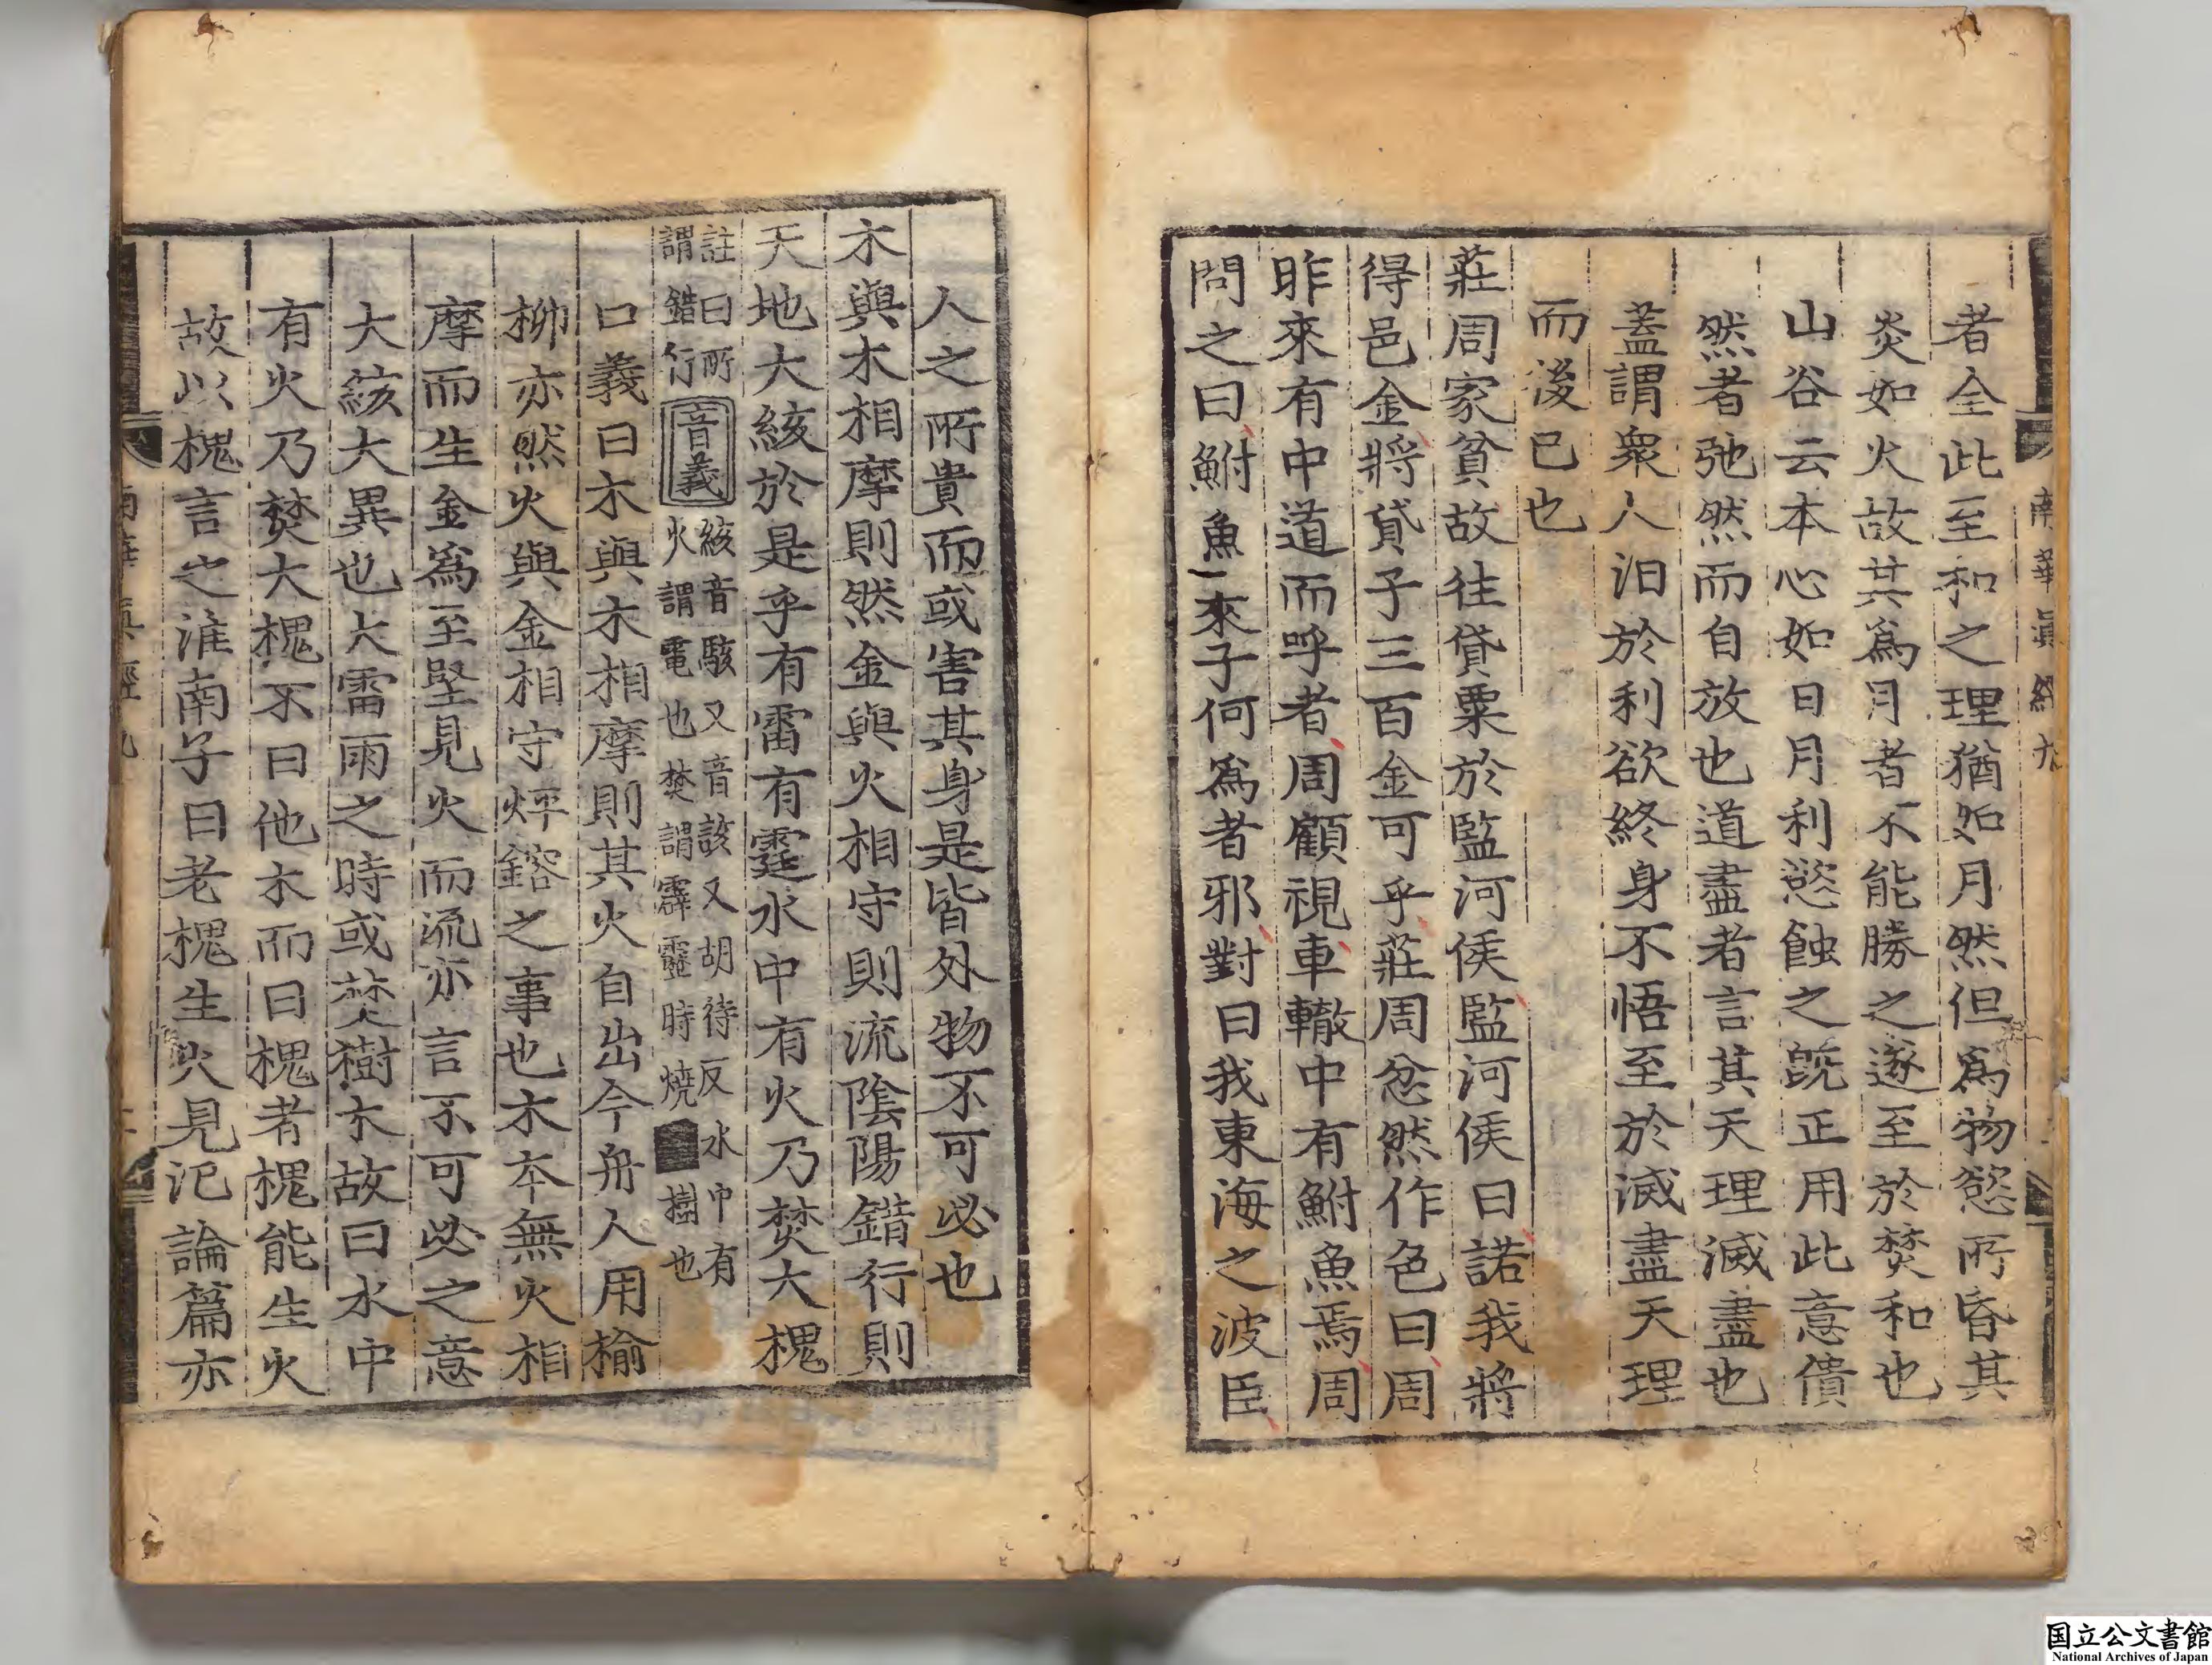 南華眞經九
者全此至和之理猶如月然但爲物慾所昏其
炎如火故其爲月者不能勝之遂至於焚和也
山谷云本心如日月利慾蝕之旣正用此意僓
然者弛然而自放也道盡者言其天理滅盡也
蓋謂衆人汩於利欲終身不悟至於滅盡天理
而後已也
莊周家貧故往貸粟於監河侯監河侯曰諾我將
得邑金將貸子三百金可乎莊周忿然作色曰周
昨來有中道而呼者周顧視車轍中有鮒魚焉周
問之曰鮒魚來子何爲者邪對曰我東海之波臣
人之所貴而或害其身是皆外物不可必也
木與木相摩則然金與火相守則流陰陽錯行則
天地大絯於是乎有雷有霆水中有火乃焚大槐
註曰所
謂錯行
音義
絯音駭又音該又胡待反水中有
火謂電也焚謂霹靂時燒樹也
口義曰木與木相摩則其火自出今舟人用榆
柳亦然火與金相守烀鎔之事也木本無火相
摩而生金爲至堅見火而流亦言不可必之意
大絯大異也大雷雨之時或焚樹木故曰水中
有火乃焚大槐不曰他木而曰槐者槐能生火
故以槐言之淮南子曰老槐生火見氾論篇亦
南華眞經九
国立公文書館
National Archives of Japan